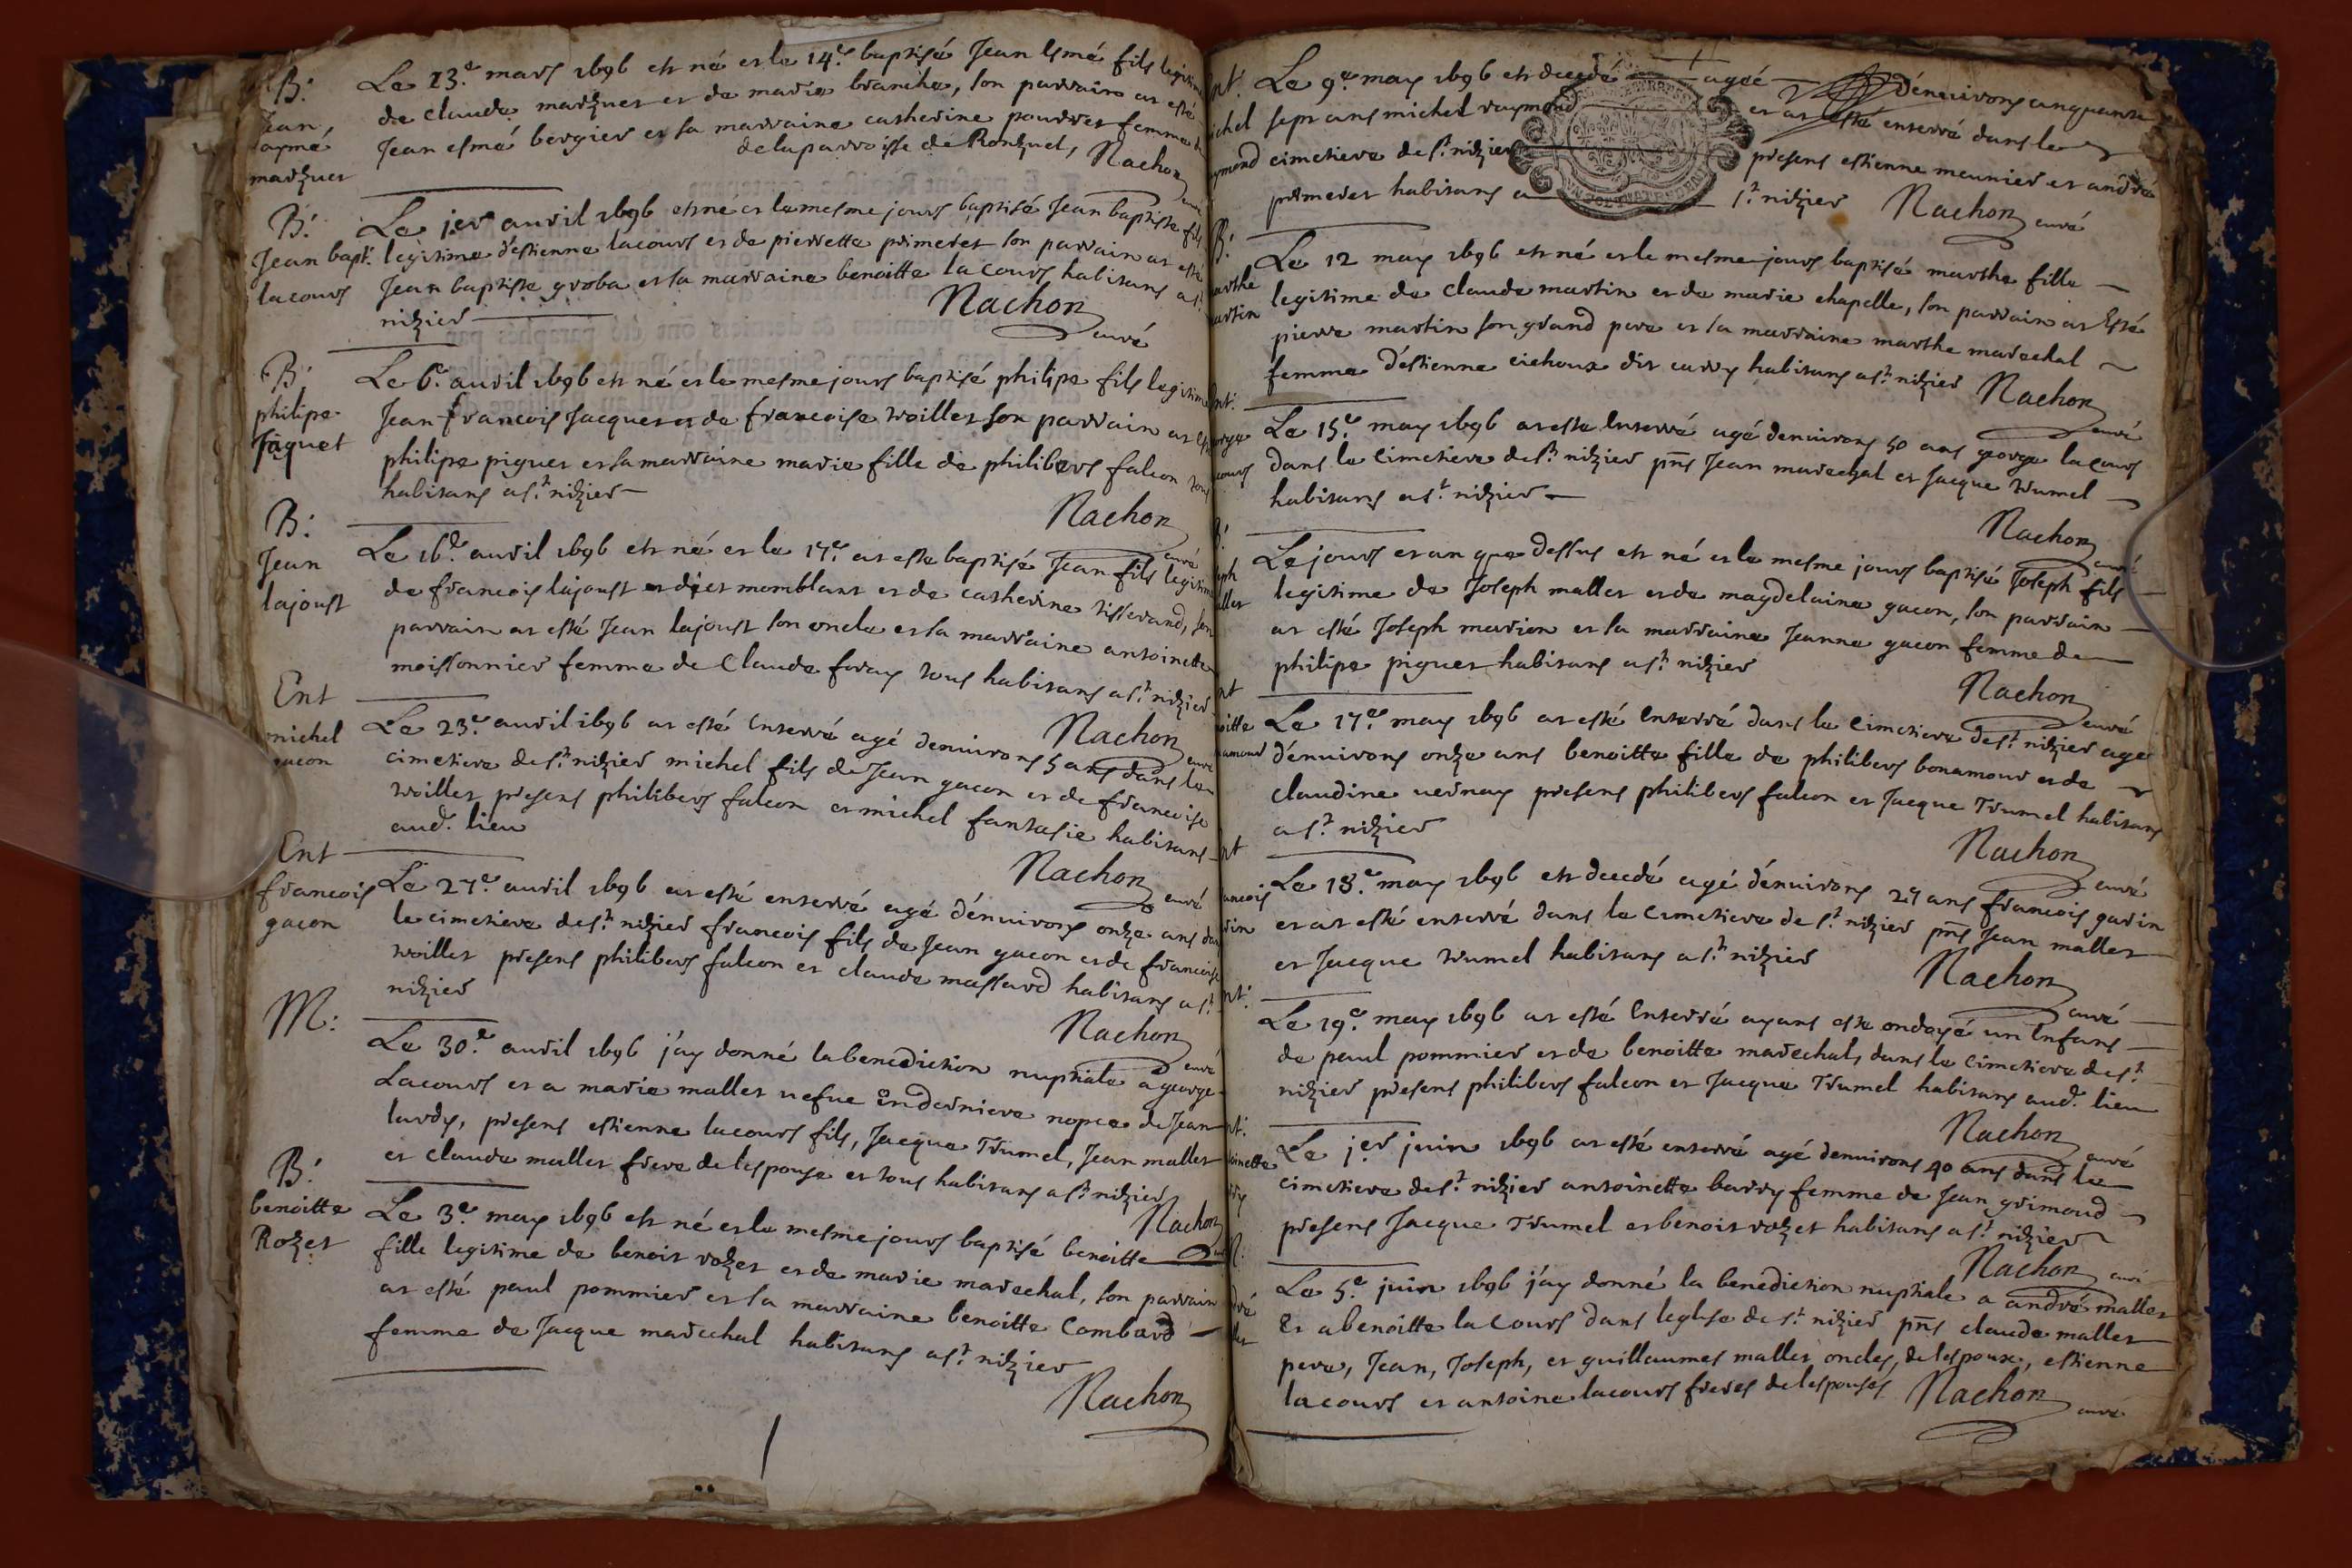 B:
Jean
aymé
marquet
Le 13.e mars 1696 est né et le 14.e baptisé Jean Esmé fils legitime
de claude marquet et de marie branche, son parrain at esté
Jean esmé bergier et sa marraine catherine pourret femme
de la parroisse de Ronzuel, Nachon curé
B:
Jean bapt.
lacours
Le jer avril 1696 est né et le mesme jours baptisé Jean baptiste fils
legitime d'estienne lacours et de pierrette primeret son parrain at esté
Jean baptiste groba et sa marraine benoitte lacours habitans a st.
nizier
Nachon curé
B:
philipe
Jaquet
Le 6.e avril 1696 est né et le mesme jours baptisé philipe fils legitime
Jean francois Jacquet et de francoise woillet son parrain at esté
philipe piguet et sa marraine marie fille de philibers falcon tous
habitans a st. nizier
Nachon curé
B:
Jean
lajoust
Le 16.e avril 1696 est né et le 17.e at esté baptisé Jean fils legitime
de francois lajoust et diet momblant et de catherine tisserand, son
parrain at esté Jean lajoust son oncle et sa marraine antoinette
moissonnier femme de Claude foray tous habitans a st. nizier
Nachon curé
Ent
michel
gacon
Le 23.e avril 1696 at esté Enterré agé denvirons 5 ans dans le
cimetiere de st. nizier michel fils de Jean gacon et de francoise
woillet presens philibers falcon et michel fantasie habitans
aud. lieu
Nachon curé
Ent
francois
gacon
Le 27.e avril 1696 at esté enterré agé d'environs onze ans dans
le cimetiere de st. nizier francois fils de Jean gacon et de francoise
woillet presens philibers falcon et claude massard habitans a st.
nizier
Nachon curé
M:
Le 30.e avril 1696 j'ay donné la benediction nuptiale a george
Lacours et a marie mallet vefue en derniere nopce de Jean
lardy, presens estienne lacours fils, Jacque Trumel, Jean mallet
et claude mallet frere de lespouse et tous habitans a st. nizier
Nachon curé
B:
benoitte
Rozet
Le 3.e may 1696 est né et le mesme jours baptisé benoitte
fille legitime de benoit rozet et de marie marechal, son parrain
at esté paul pommier et sa marraine benoitte Combard
femme de Jacque marechal habitans a st. nizier
Nachon
nt:
ichel
ymond
Le 9.e may 1696 est decedé agé d'environs cinquante
sept ans michel raymond et at esté enterré dans le
cimetiere de st. nizier presens estienne meunier et andré
primeret habitans a st. nizier Nachon curé
B:
arthe
artin
Le 12 may 1696 est né et le mesme jours baptisé marthe fille
legitime de claude martin et de marie chapelle, son parrain at Esté
pierre martin son grand pere et sa marraine marthe marechal
femme d'estienne cichoux dit curry habitans a st. nizier Nachon curé
nt:
eorge
cours
Le 15.e may 1696 at esté Enterré agé denvirons 50 ans george lacours
dans le cimetiere de st. nizier pns Jean marechal et Jacque trumel
habitans a st. nizier
Nachon curé
B:
eph
allet
Le jours et an que dessus est né et le mesme jours baptisé Joseph fils
legitime de Joseph mallet et de magdelaine gacon, son parrain
at esté Joseph marion et sa marraine Jeanne gacon femme de
philipe piguet habitans a st. nizier
Nachon curé
nt
oitte
amour
Le 17.e may 1696 at esté Enterré dans le cimetiere de st. nizier agé
d'environs onze ans benoitte fille de philibers bonamour et de
claudine vernay presens philibers falcon et Jacque Trumel habitans
a st. nizier
Nachon curé
nt
ancois
rin
Le 18.e may 1696 est decedé agé d'environs 25 ans francois garin
et at esté enterré dans le cimetiere de st. nizier pns Jean mallet
et Jacque trumel habitans a st. nizier
Nachon curé
nt:
Le 19.e may 1696 at esté Enterré ayant esté ondoyé un Enfans
de paul pommier et de benoitte marechal, dans le cimetiere de st.
nizier presens philibers falcon et Jacque Trumel habitans aud. lieu
Nachon curé
nt:
oinette
rry
Le jer juin 1696 at esté enterré agé denvirons 40 ans dans le
cimetiere de st. nizier antoinette barry femme de Jean grimoud
presens Jacque Trumel et benoit rozet habitans a st. nizier
Nachon curé
M:
dré
llet
Le 5.e juin 1696 j'ay donné la benediction nuptiale a andré mallet
Et a benoitte lacours dans leglise de st. nizier pns claude mallet
pere, Jean, Joseph, et guillaumes mallet oncles, de lespoux, estienne
lacours et antoine lacours freres de lespousés Nachon curé